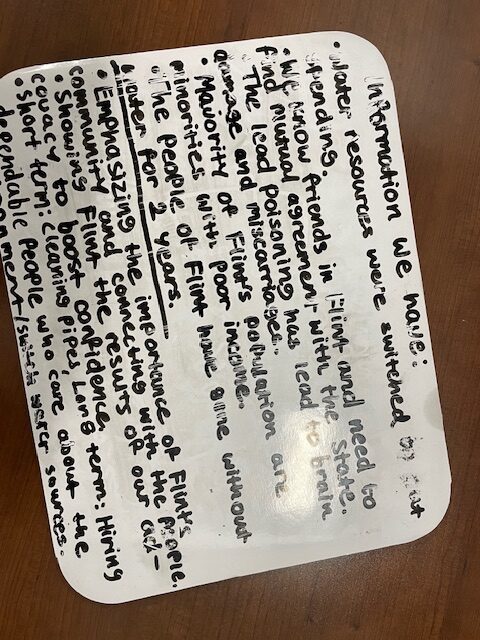 Information we have:
• Water resources were switched to cut
spending.
• We know friends in Flint and need to
find mutual agreement with the state.
• The lead poisoning has lead to brain
damage and miscarriages.
• Majority of Flint's population are
minorities with poor income.
• The people of Flint have gine without
water for 2 years.
• Emphasizing the importance of Flint's
community and connecting with the people.
• Showing Flint the results of our ad-
covacy to boost confidence.
• Short term: cleaning pipes, Long term: Hiring
dependable people who care about the
environment/switch water sources.